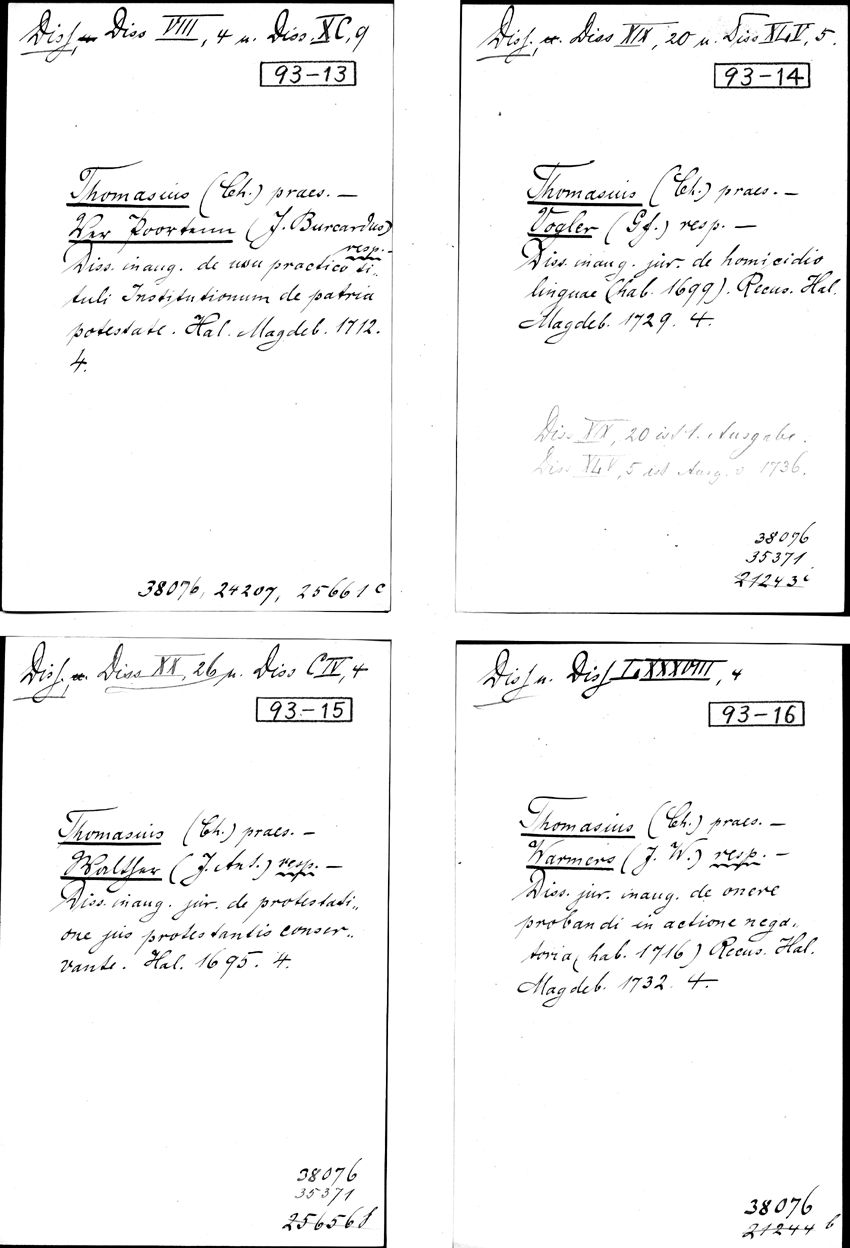 Diss. u. Diss VIII, 4 u. Diss. XC, 9
93-13
Thomasius (Ch.) praes. —
Ver Poortenn (J. Burcardus)
resp. —
Diss. inaug. de usu practico ti„
tuli Institutionum de patria
potestate. Hal. Magdeb. 1712.
4.
38076, 24207, 25661 c
Diss. u. Diss XIX, 20 u. Diss XLV, 5.
93-14
Thomasius (Ch.) praes. —
Vogler (Gf.) resp. —
Diss. inaug. jur. de homicidio
linguae (hab. 1699). Recus. Hal.
Magdeb. 1729. 4.
Diss XIX, 20 ist 1. Ausgabe.
Diss XLV, 5 ist Ausg. v 1736.
38076
35371
21243c
Diss. u. Diss XX, 26 u. Diss CIV, 4
93-15
Thomasius (Ch.) praes. —
Walther (J. Ant.) resp. —
Diss. inaug. jur. de protestati„
one jus protestantis conser„
vante. Hal. 1695. 4.
38076
35371
25656f
Diss u. Diss LXXXVIII, 4
93-16
Thomasius (Ch.) praes. —
Warmers (J. W.) resp. —
Diss. jur. inaug. de onere
probandi in actione nega„
toria (hab. 1716) Recus. Hal.
Magdeb. 1732. 4.
38076
21244 b